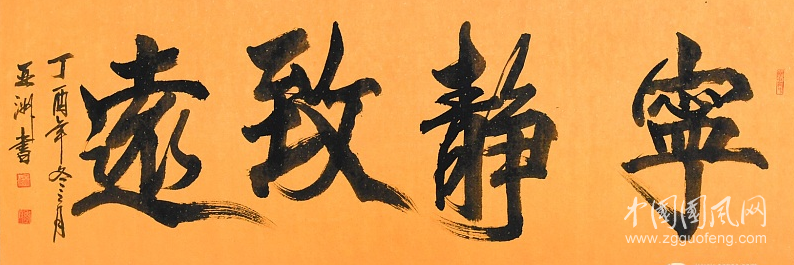 寧靜致遠
丁酉年冬三月
亚洲書
中国國风网
www.zgguofeng.com